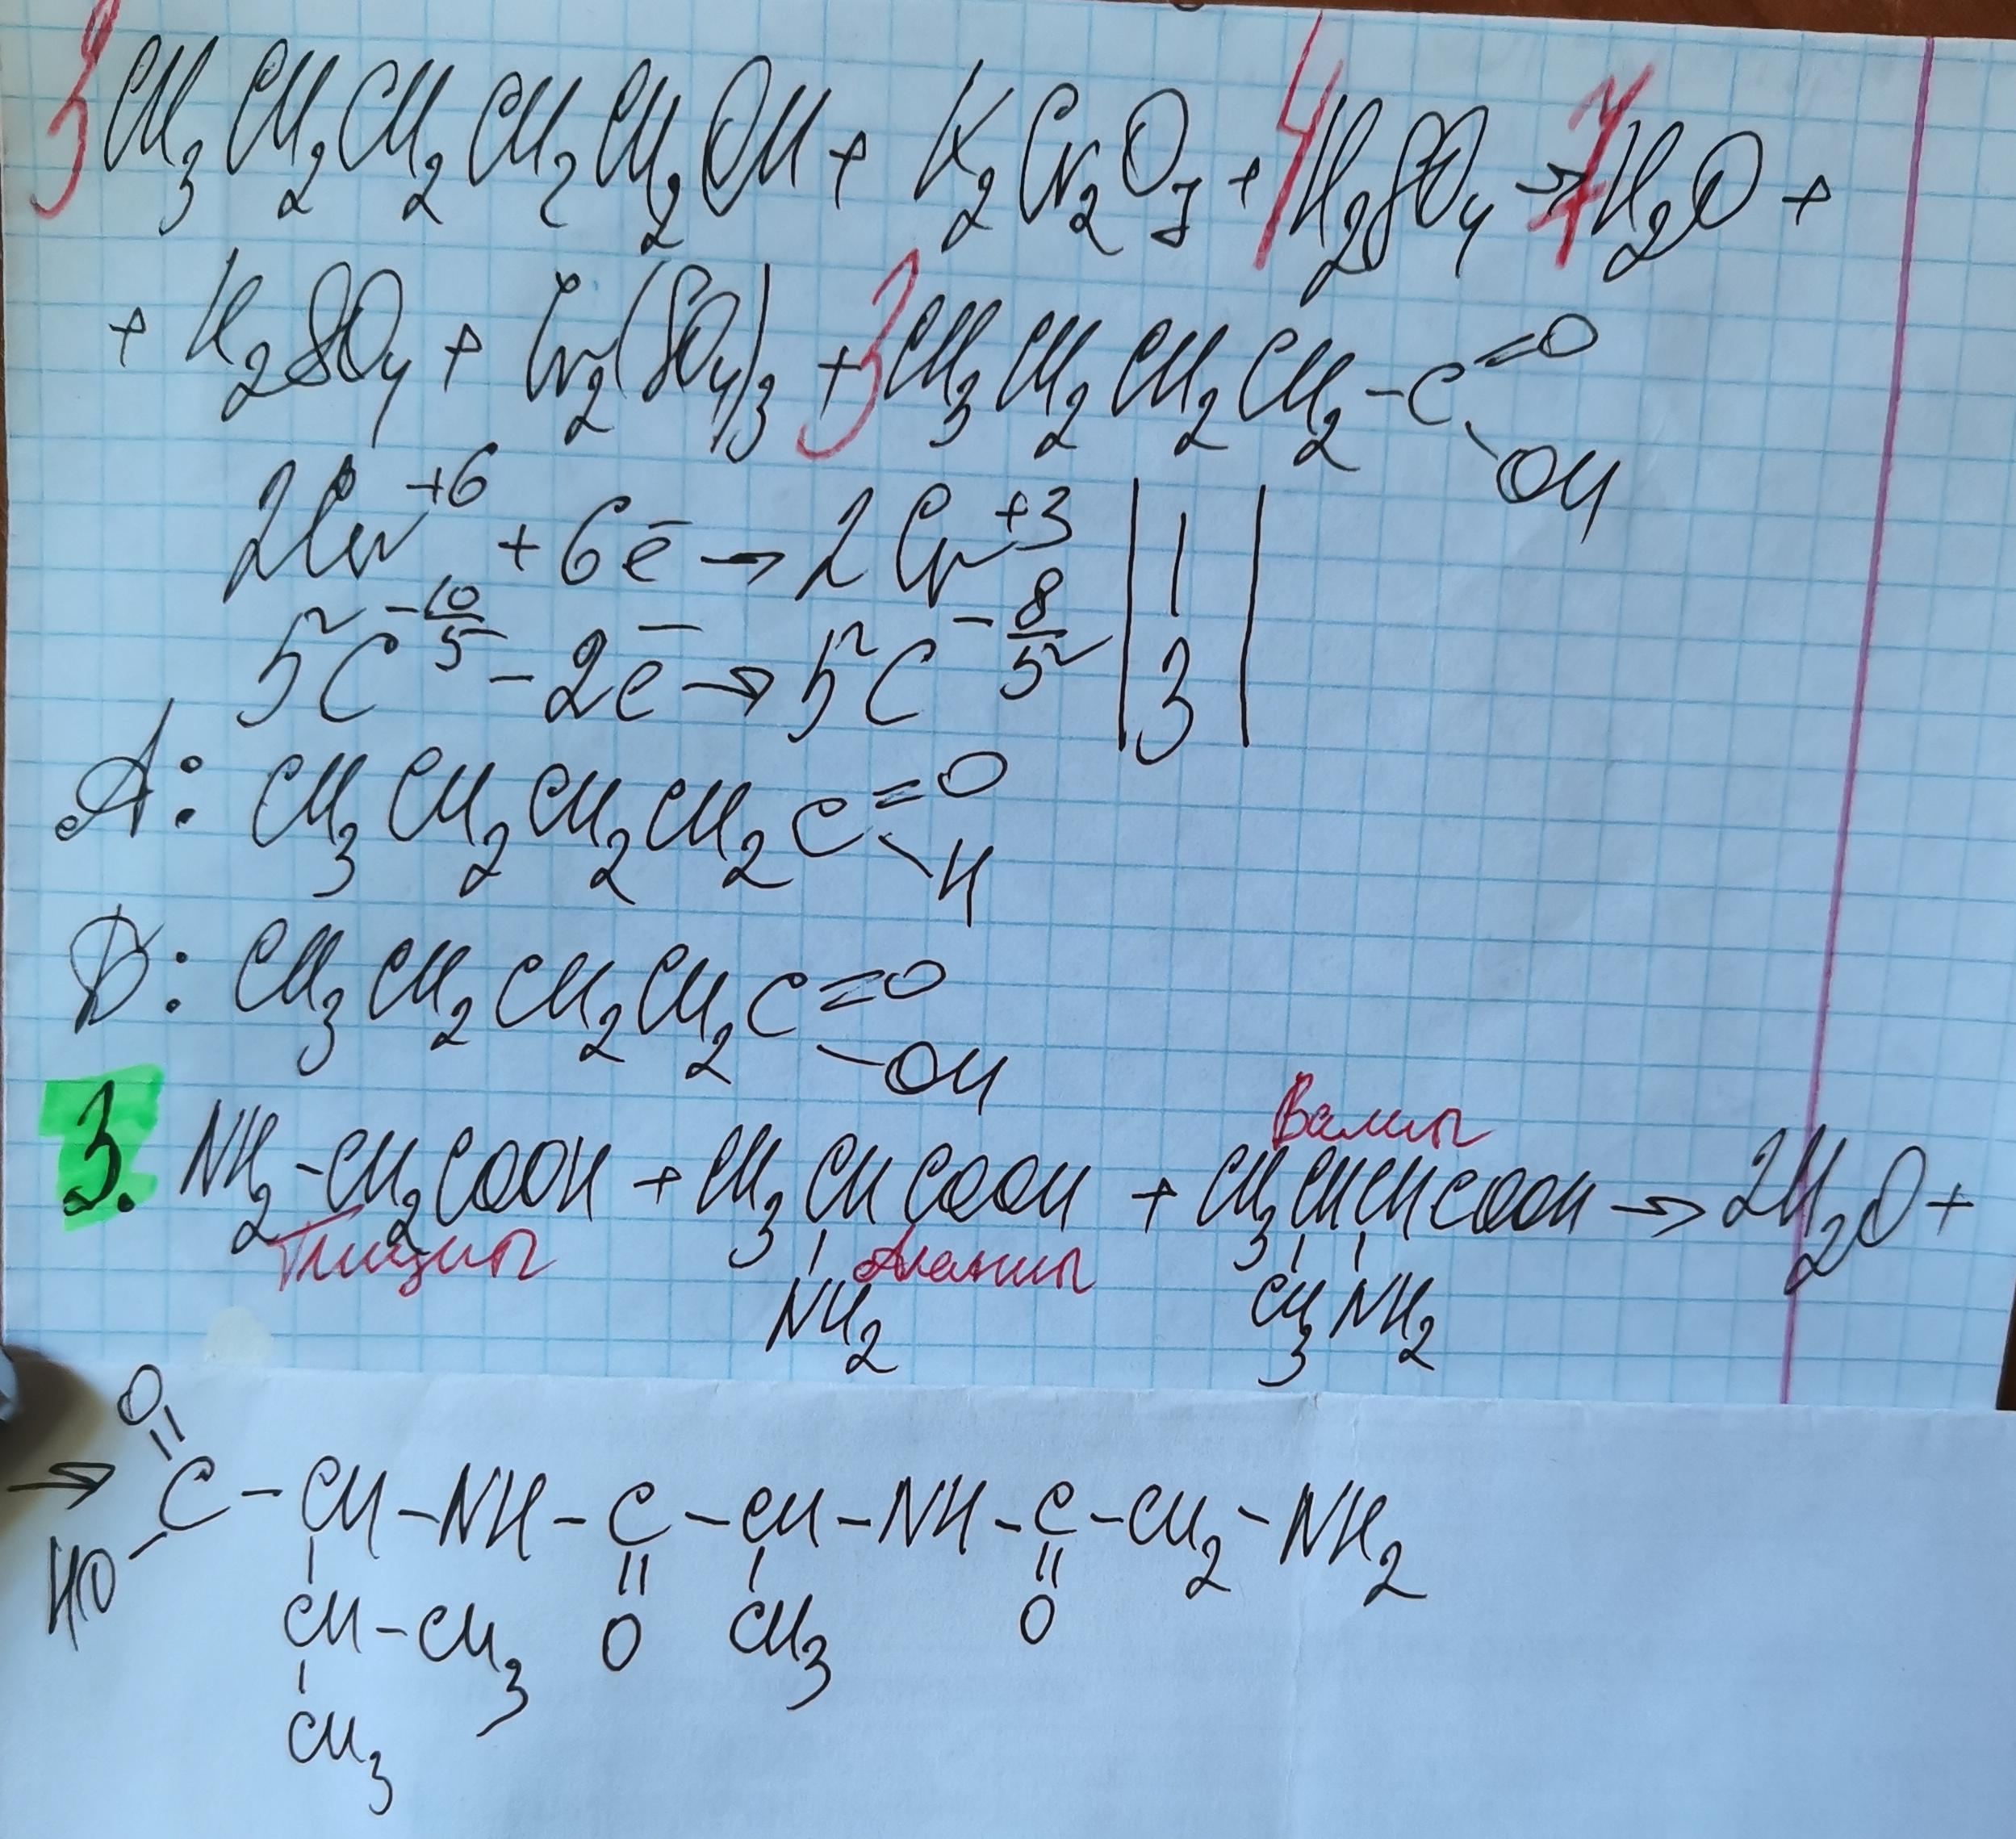 3CH₃CH₂CH₂CH₂CH₂OH + K₂Cr₂O₇ + 4H₂SO₄ → 7H₂O +
+ K₂SO₄ + Cr₂(SO₄)₃ + 3CH₃CH₂CH₂CH₂-C=O
OH
2Cr⁺⁶ + 6e̅ → 2Cr⁺³ | 1 |
5C^-10/5 - 2e̅ → 5C^-8/5 | 3 |
A: CH₃CH₂CH₂CH₂C=O
H
D: CH₃CH₂CH₂CH₂C=O
OH
Валин
3. NH₂-CH₂COOH + CH₃CHCOOH + CH₃CHCHCOOH → 2H₂O +
Глицин Аланин
NH₂ CH₃ NH₂
O
→ C-CH-NH-C-CH-NH-C-CH₂-NH₂
HO CH-CH₃ O CH₃ O
CH₃